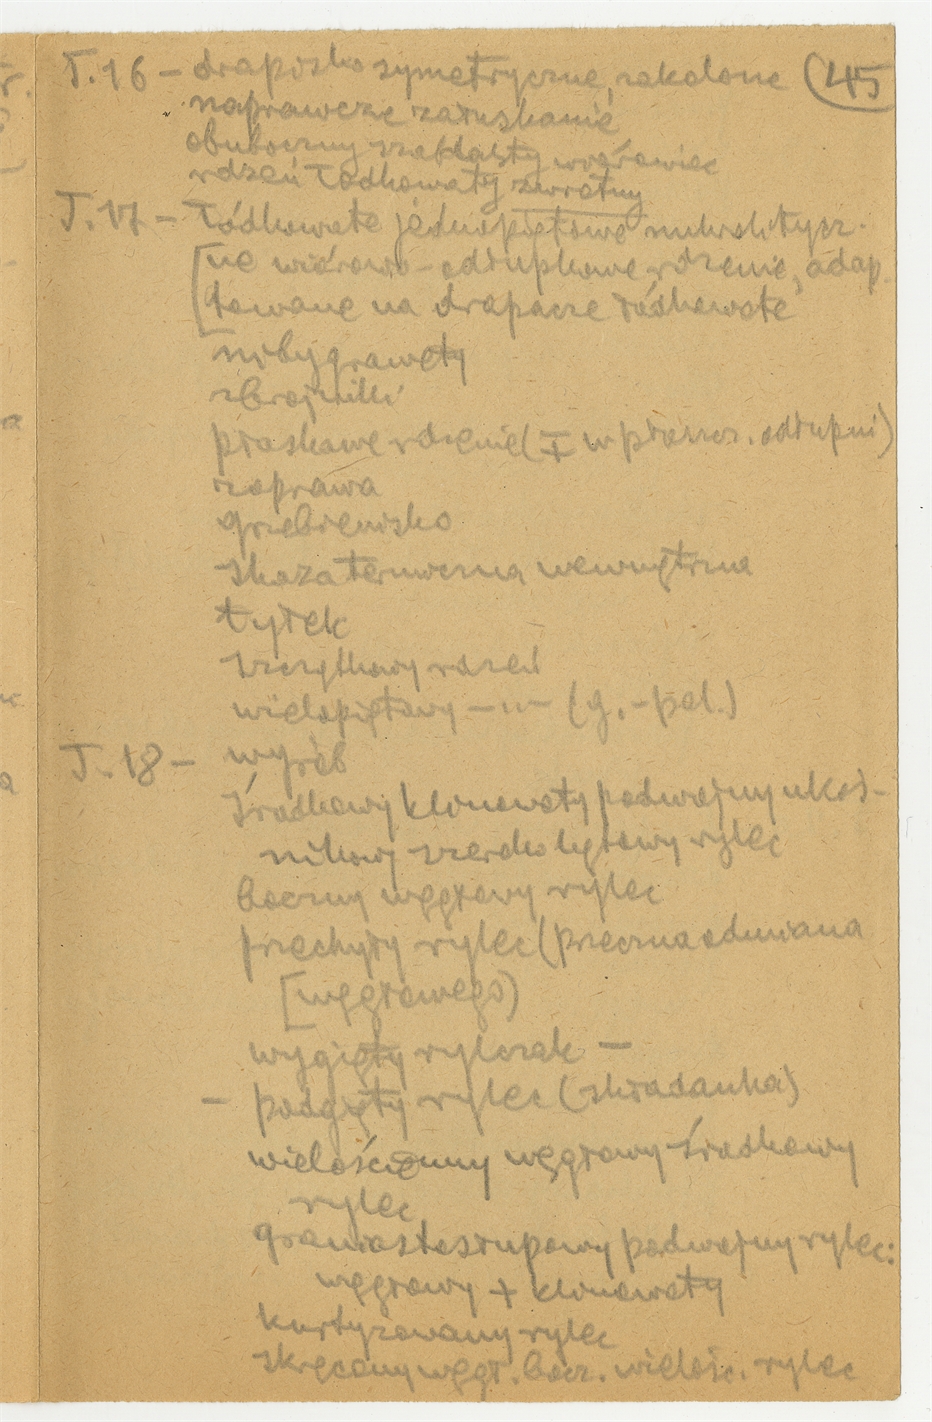 T.16 – drapisko symetryczne, zakolone (45
naprawcze załuskanie
obuboczny szablasty wiórowiec
rdzeń łódkowaty zwrotny
T.17 – łódkowate jednopiętowe mikrolitycz.
[ne wiórowo-odłupkowe rdzenie, adap
[towane na drapacze łódkowate
nibygrawety
zbrojniki
płaskowe rdzenie (I w płaszcz. odłupni)
zaprawa
grzebienisko
skaza termiczna wewnętrzna
tyłek
szczytkowy rdzeń
wielopiętowy –"– (g.-pal.)
T.18 – wyrób
środkowy klinowaty podwójny ukoś-
nikowy szerokołezowy rylec
boczny węgłowy rylec
przechyły rylec (poprzeczna odmiana
[węgłowego)
wygięty rylczak –
– podgięty rylec (składanka)
wielościenny węgłowy środkowy
rylec
graniastosłupowy podwójny rylec:
węgłowy + klinowaty
kartyzowany rylec
skręcony węgł. bocz. wielośc. rylec